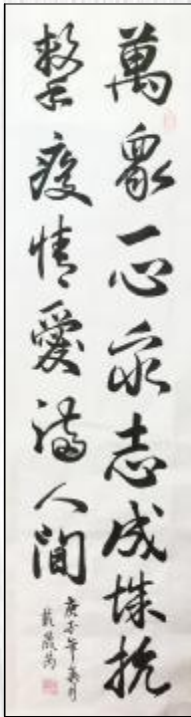 萬眾一心衆志成城抗
擊疫情愛滿人間
庚子年